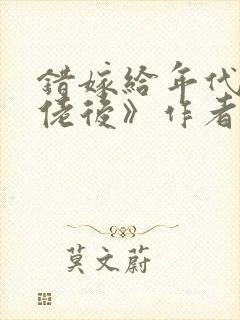 錯嫁給年代
佬後》作者
莫文蔚